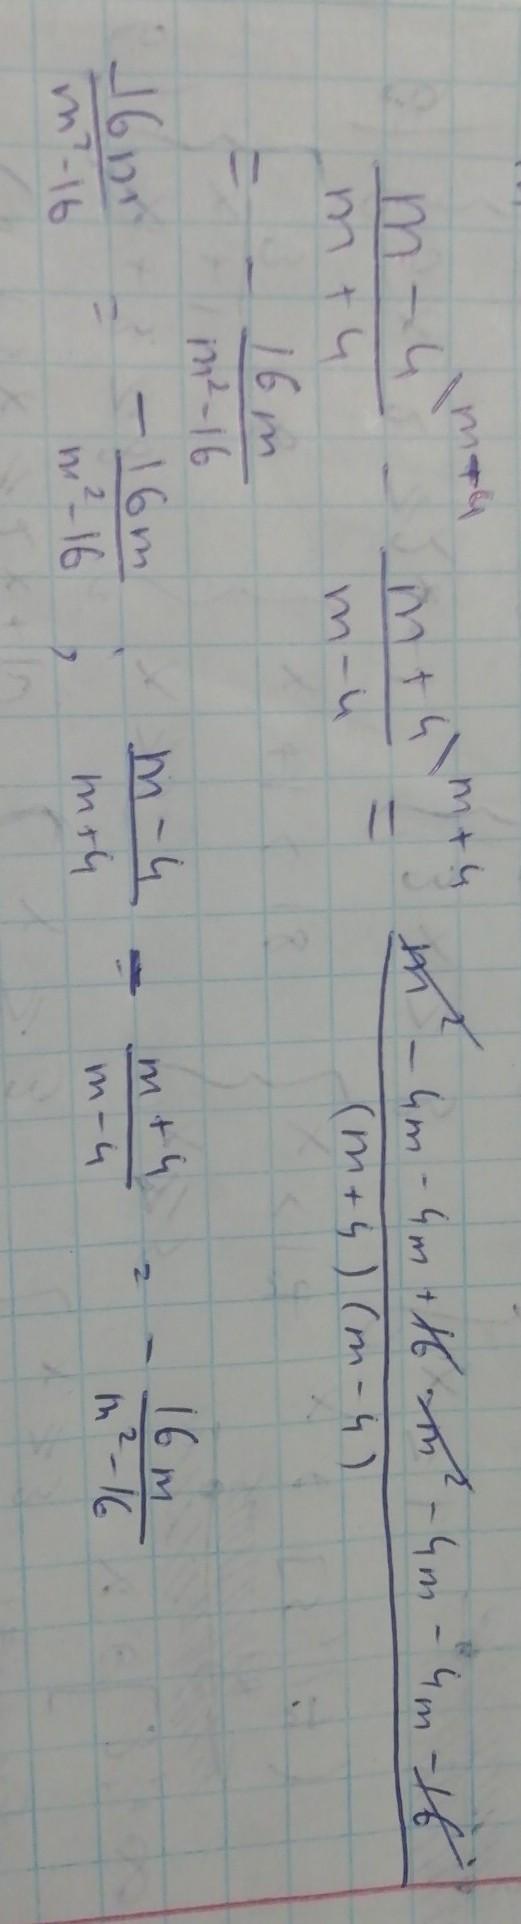 \frac{m-4}{m+4}^{\backslash m+4} - \frac{m+4}{m-4}^{\backslash m+4} = \frac{m^2-4m-4m+16-m^2-4m-4m-16}{(m+4)(m-4)}
= -\frac{16m}{m^2-16}
\frac{-16m}{m^2-16} = -\frac{16m}{m^2-16}, \frac{m-4}{m+4} - \frac{m+4}{m-4} = -\frac{16m}{m^2-16}